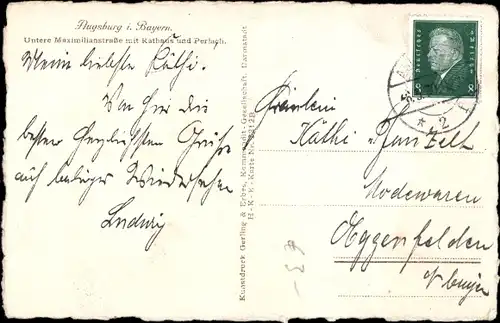 Augsburg i. Bayern.
Untere Maximilianstraße mit Rathaus und Perlach.
Meine liebste Käthi.
Von hier die
besten herzlichsten Grüße
auf baldiges Wiedersehn
Ludwig
Kunstdruck Gerling & Erbes, Kommandit-Gesellschaft, Darmstadt
H.-K.-E.-Karte No.
Deutsches Reich
8 8
Fräulein
Käthi Pfanzelt
Modewaren
Eggenfelden
N/bayern